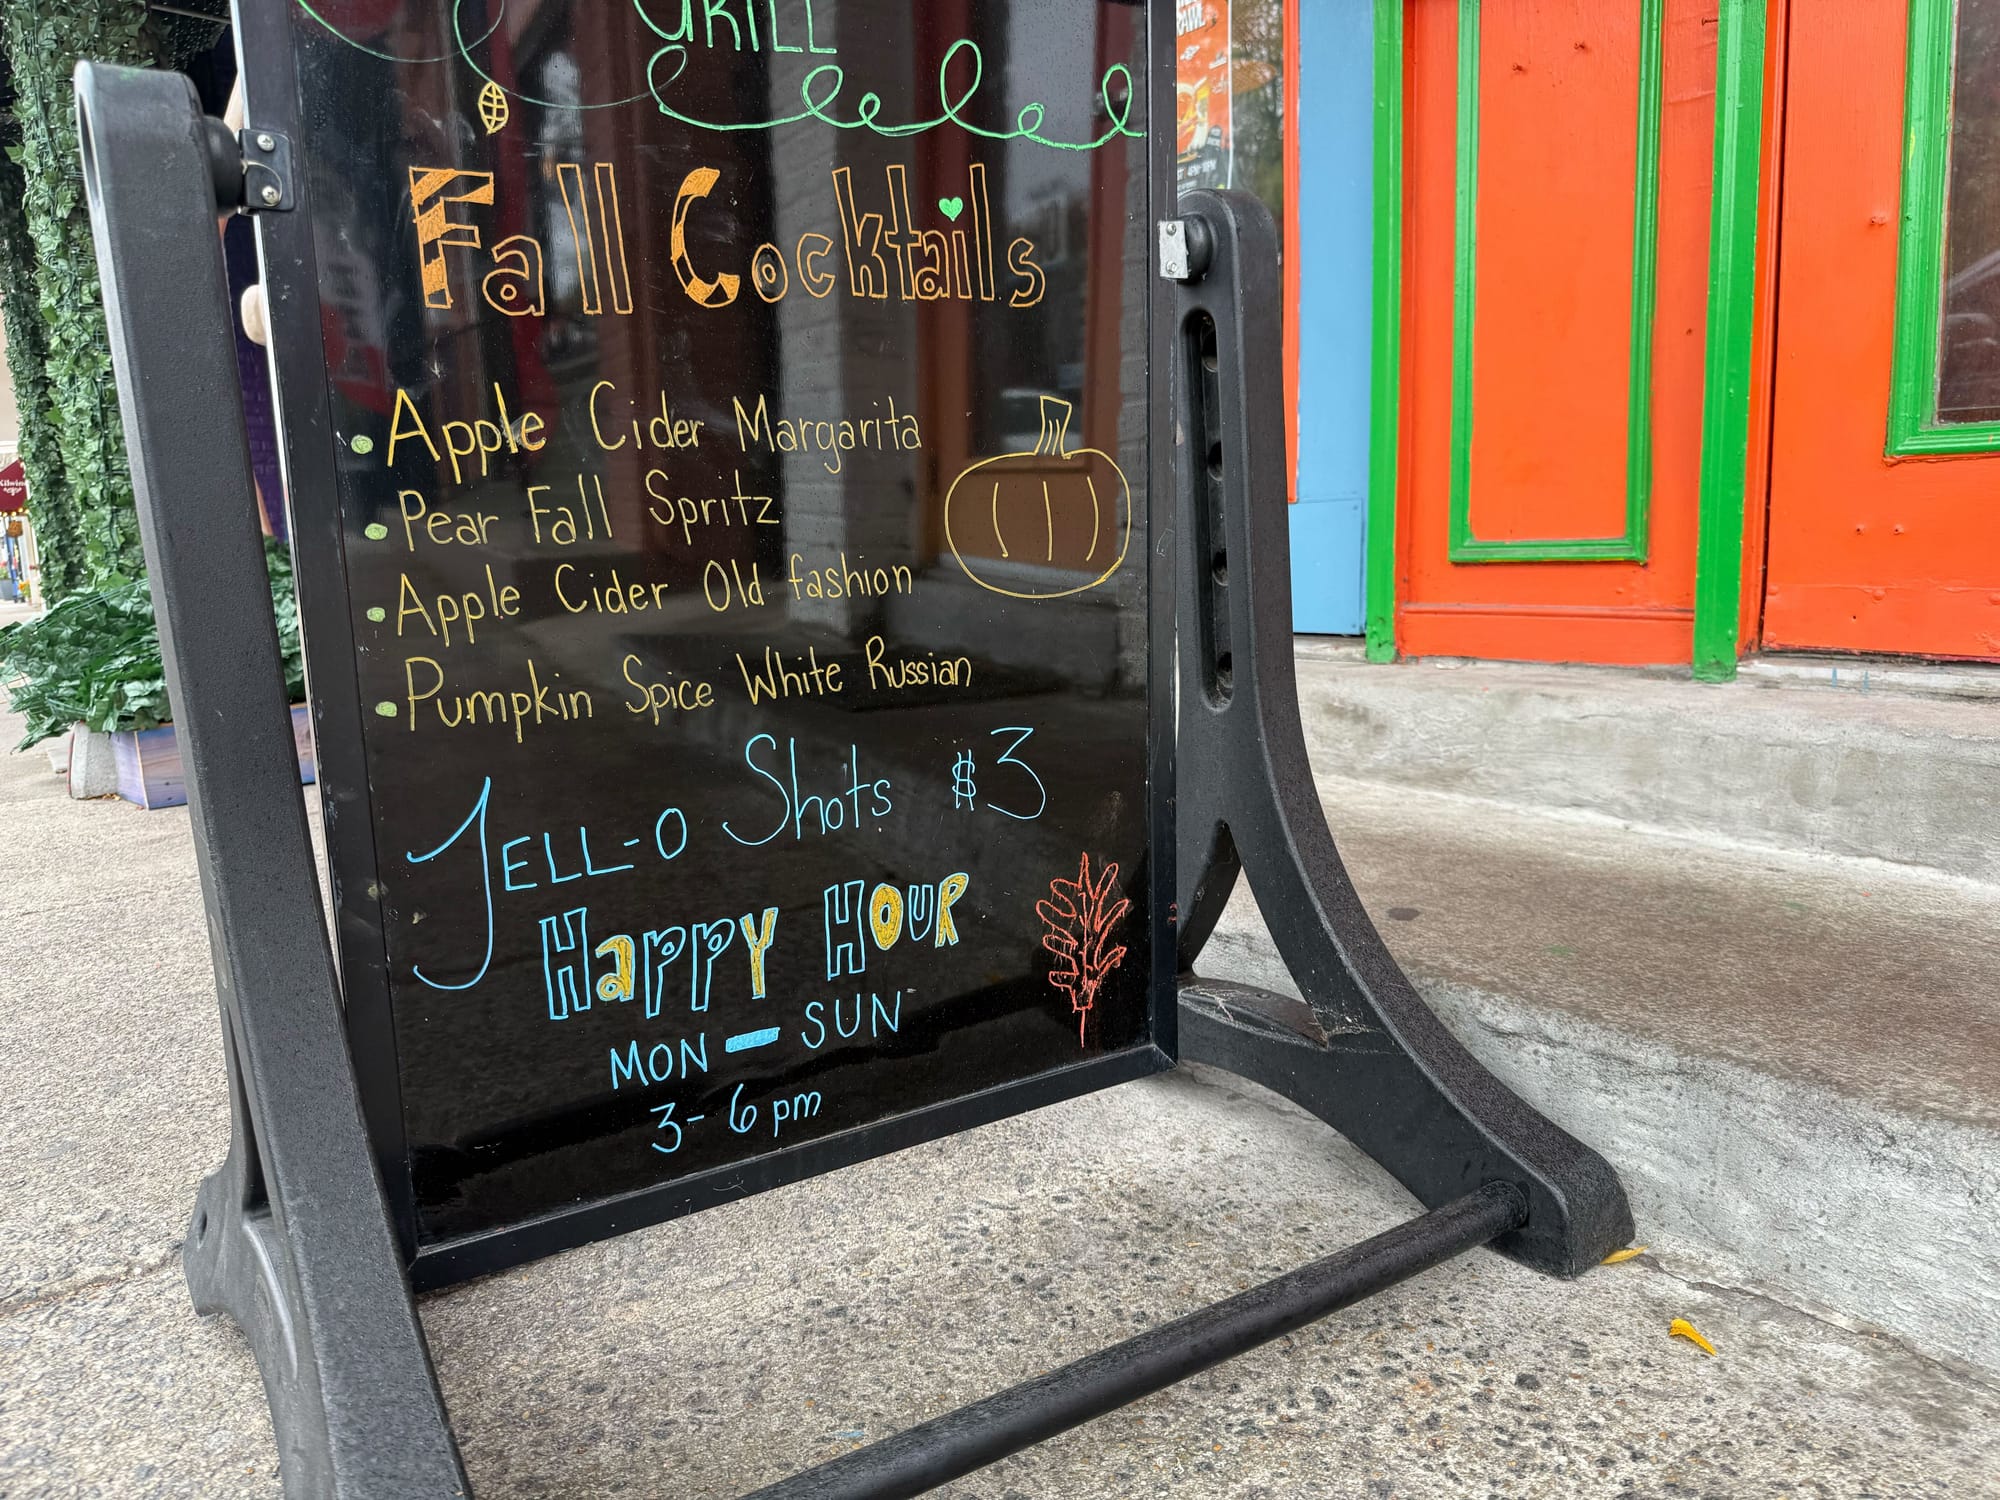 GRILL
Fall Cocktails
• Apple Cider Margarita
• Pear Fall Spritz
• Apple Cider Old fashion
• Pumpkin Spice White Russian
JELL-O Shots $3
Happy Hour
MON - SUN
3 - 6 pm